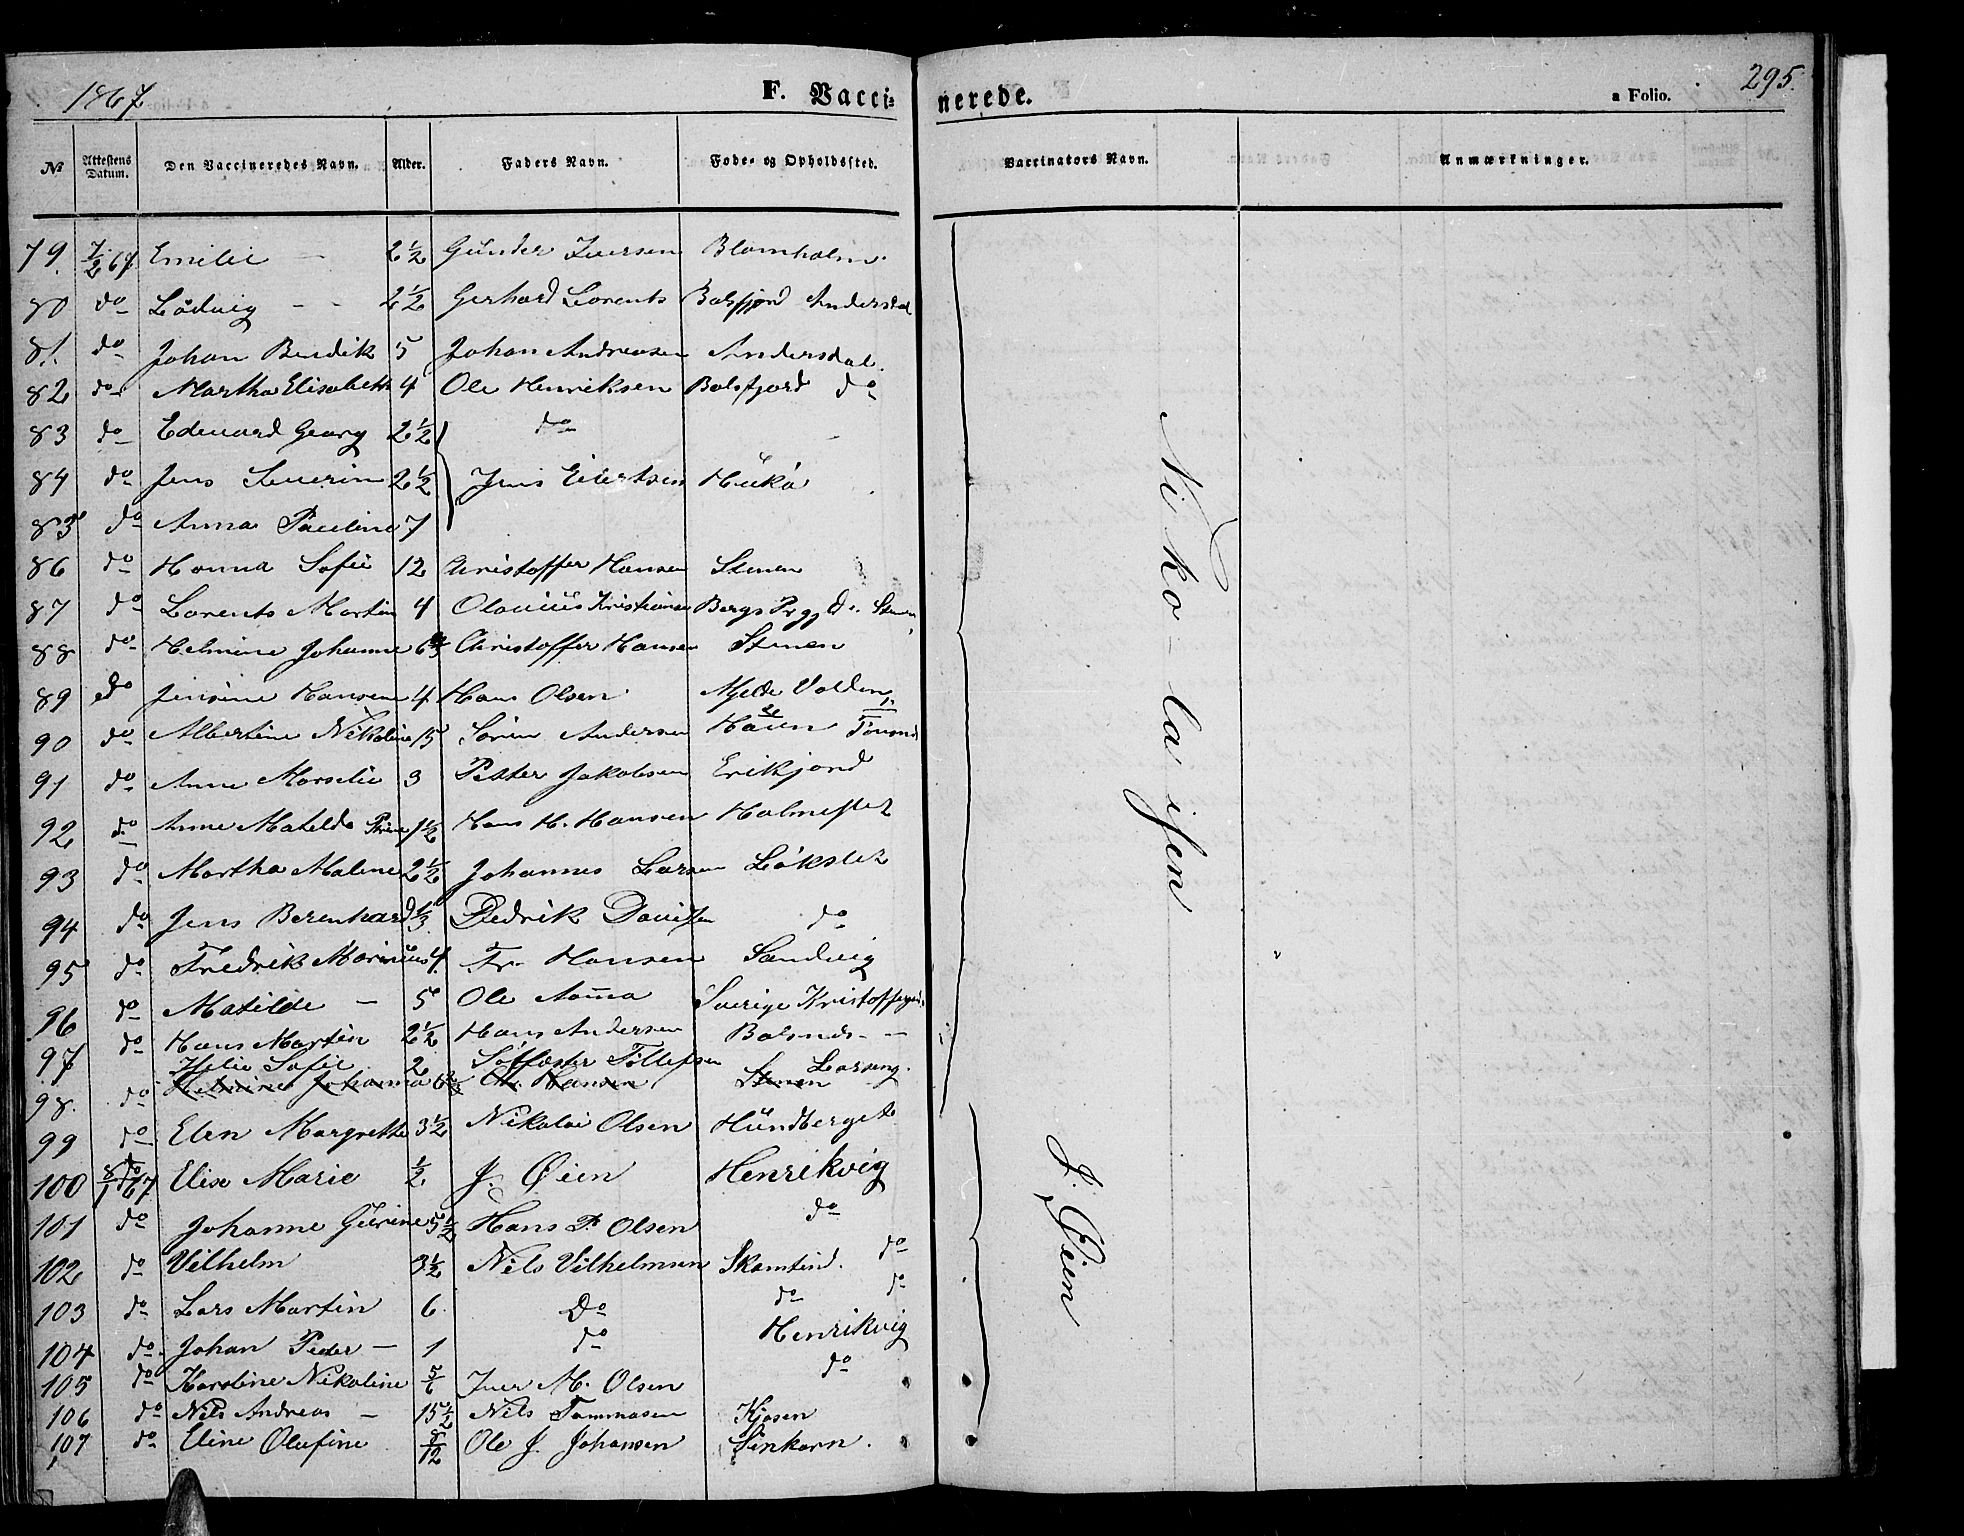 1867. F. Vacci= nerede. a Folio. 295.
№ Attestens Datum. Den Vaccineredes Navn. Alder. Faders Navn. Føde= og Opholdssted. Vaccinators Navn. Anmærkninger.
79. 7/2 67 Emilie – 2½ Günder Iversen Blomholm.
80 do Lødvig – – 2½ Gerhard Lorents Balsfjord Andersdal
81. do Johan Bendik 5 Johan Andreasen Andersdal.
82 do Martha Elisabeth 4 Ole Henriksen Balsfjord do
83 do Edward Georg 2½ do
84 do Jens Severin 2½ Jens Eilertsen
85 do Anna Pauline 7
86 do Hanna Sofie 12 Christoffer Hansen Stenen
87 do Lorents Martin 4 Olavius Kristiansen Bergs Prgj
88 do Helmine Johanne 6 Christoffer Hansen Stenen
89 do Jensine Hansine 4 Hans Olsen Mjelde
90 do Albertine Nikoline 15 Søren Andersen
91 do Anne Marselie 3 Petter Jakobsen Erikjord
92 do Anne Matilde 1½ Hans H. Hansen Holmeslet
93 do Martha Malene 2½ Johannes Larsen Løkslet
94 do Jens Berenhard 1/3 Fredrik Davissen do
95 do Fredrik Marinius 4 Fr. Hansen Sandvig
96 do Matilde – 5 Ole Sverige
97 do Hans Martin 2½ Hans Andersen Balsnes –
Sofie 2 Tollefsen
98. do Helmine Johanna 6 Chr. Hansen Stenen
99 do Elen Margrethe 3½ Nikolai Olsen Hündberget
100 8/1 67 Elise Marie ½ J. Øien Henrikvig
101 do Johanne Gürine 5½ Hans P. Olsen do
102 do Vilhelm 3½ Nils Vilhelmsen Skamtind. do
103 do Lars Martin 6. Do do do
104 do Johan Peder – 1 do Henrikvig
105 do Karoline Nikoline 5/6 Iver M. Olsen do
106 do Nils Andreas – 15½ Nils Tommasen Kjosen
107 do Eline Olufine 8/12 Ole J. Johansen Sinkarn.
Niko-laisen
J. Øien